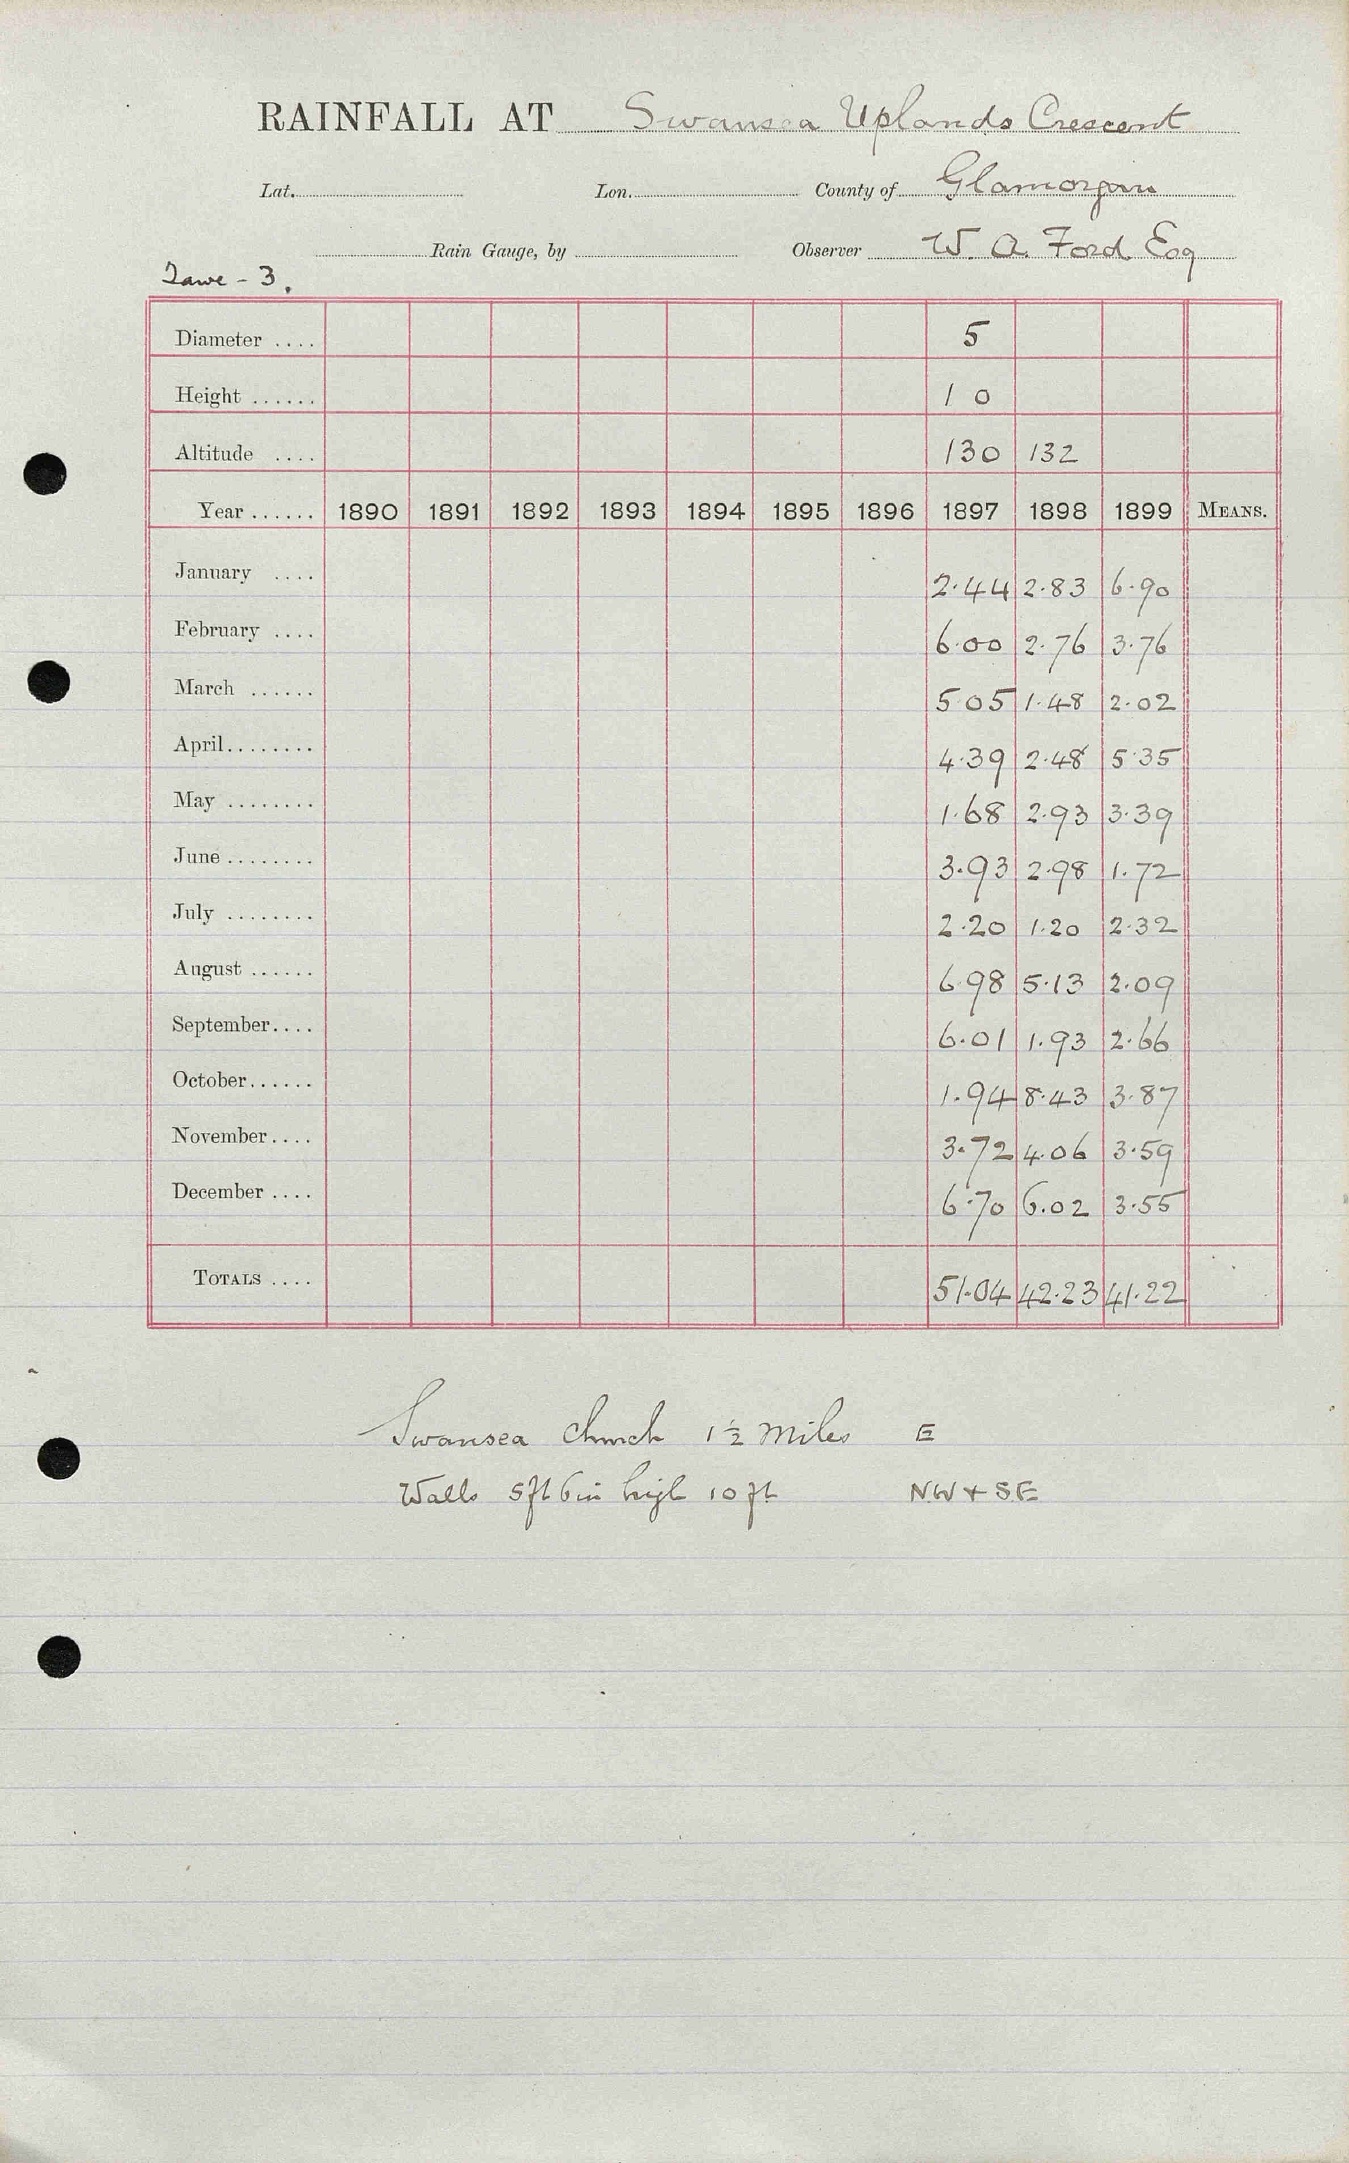 RAINFALL AT Swansea Uplands Crescent
Lat. Lon. County of Glamorgan
Rain Gauge, by Observer W. A. Ford Esq
Tawe - 3.
Diameter .... 5
Height ...... 1 0
Altitude .... 130 132
Year ...... 1890 1891 1892 1893 1894 1895 1896 1897 1898 1899 MEANS.
January .... 2.44 2.83 6.90
February .... 6.00 2.76 3.76
March ...... 5.05 1.48 2.02
April........ 4.39 2.48 5.35
May ........ 1.68 2.93 3.39
June ........ 3.93 2.98 1.72
July ........ 2.20 1.20 2.32
August ...... 6.98 5.13 2.09
September.... 6.01 1.93 2.66
October...... 1.94 8.43 3.87
November.... 3.72 4.06 3.59
December .... 6.70 6.02 3.55
TOTALS .... 51.04 42.23 41.22
Swansea Church 1½ miles E
Walls 5ft 6in high 10 ft NW + SE